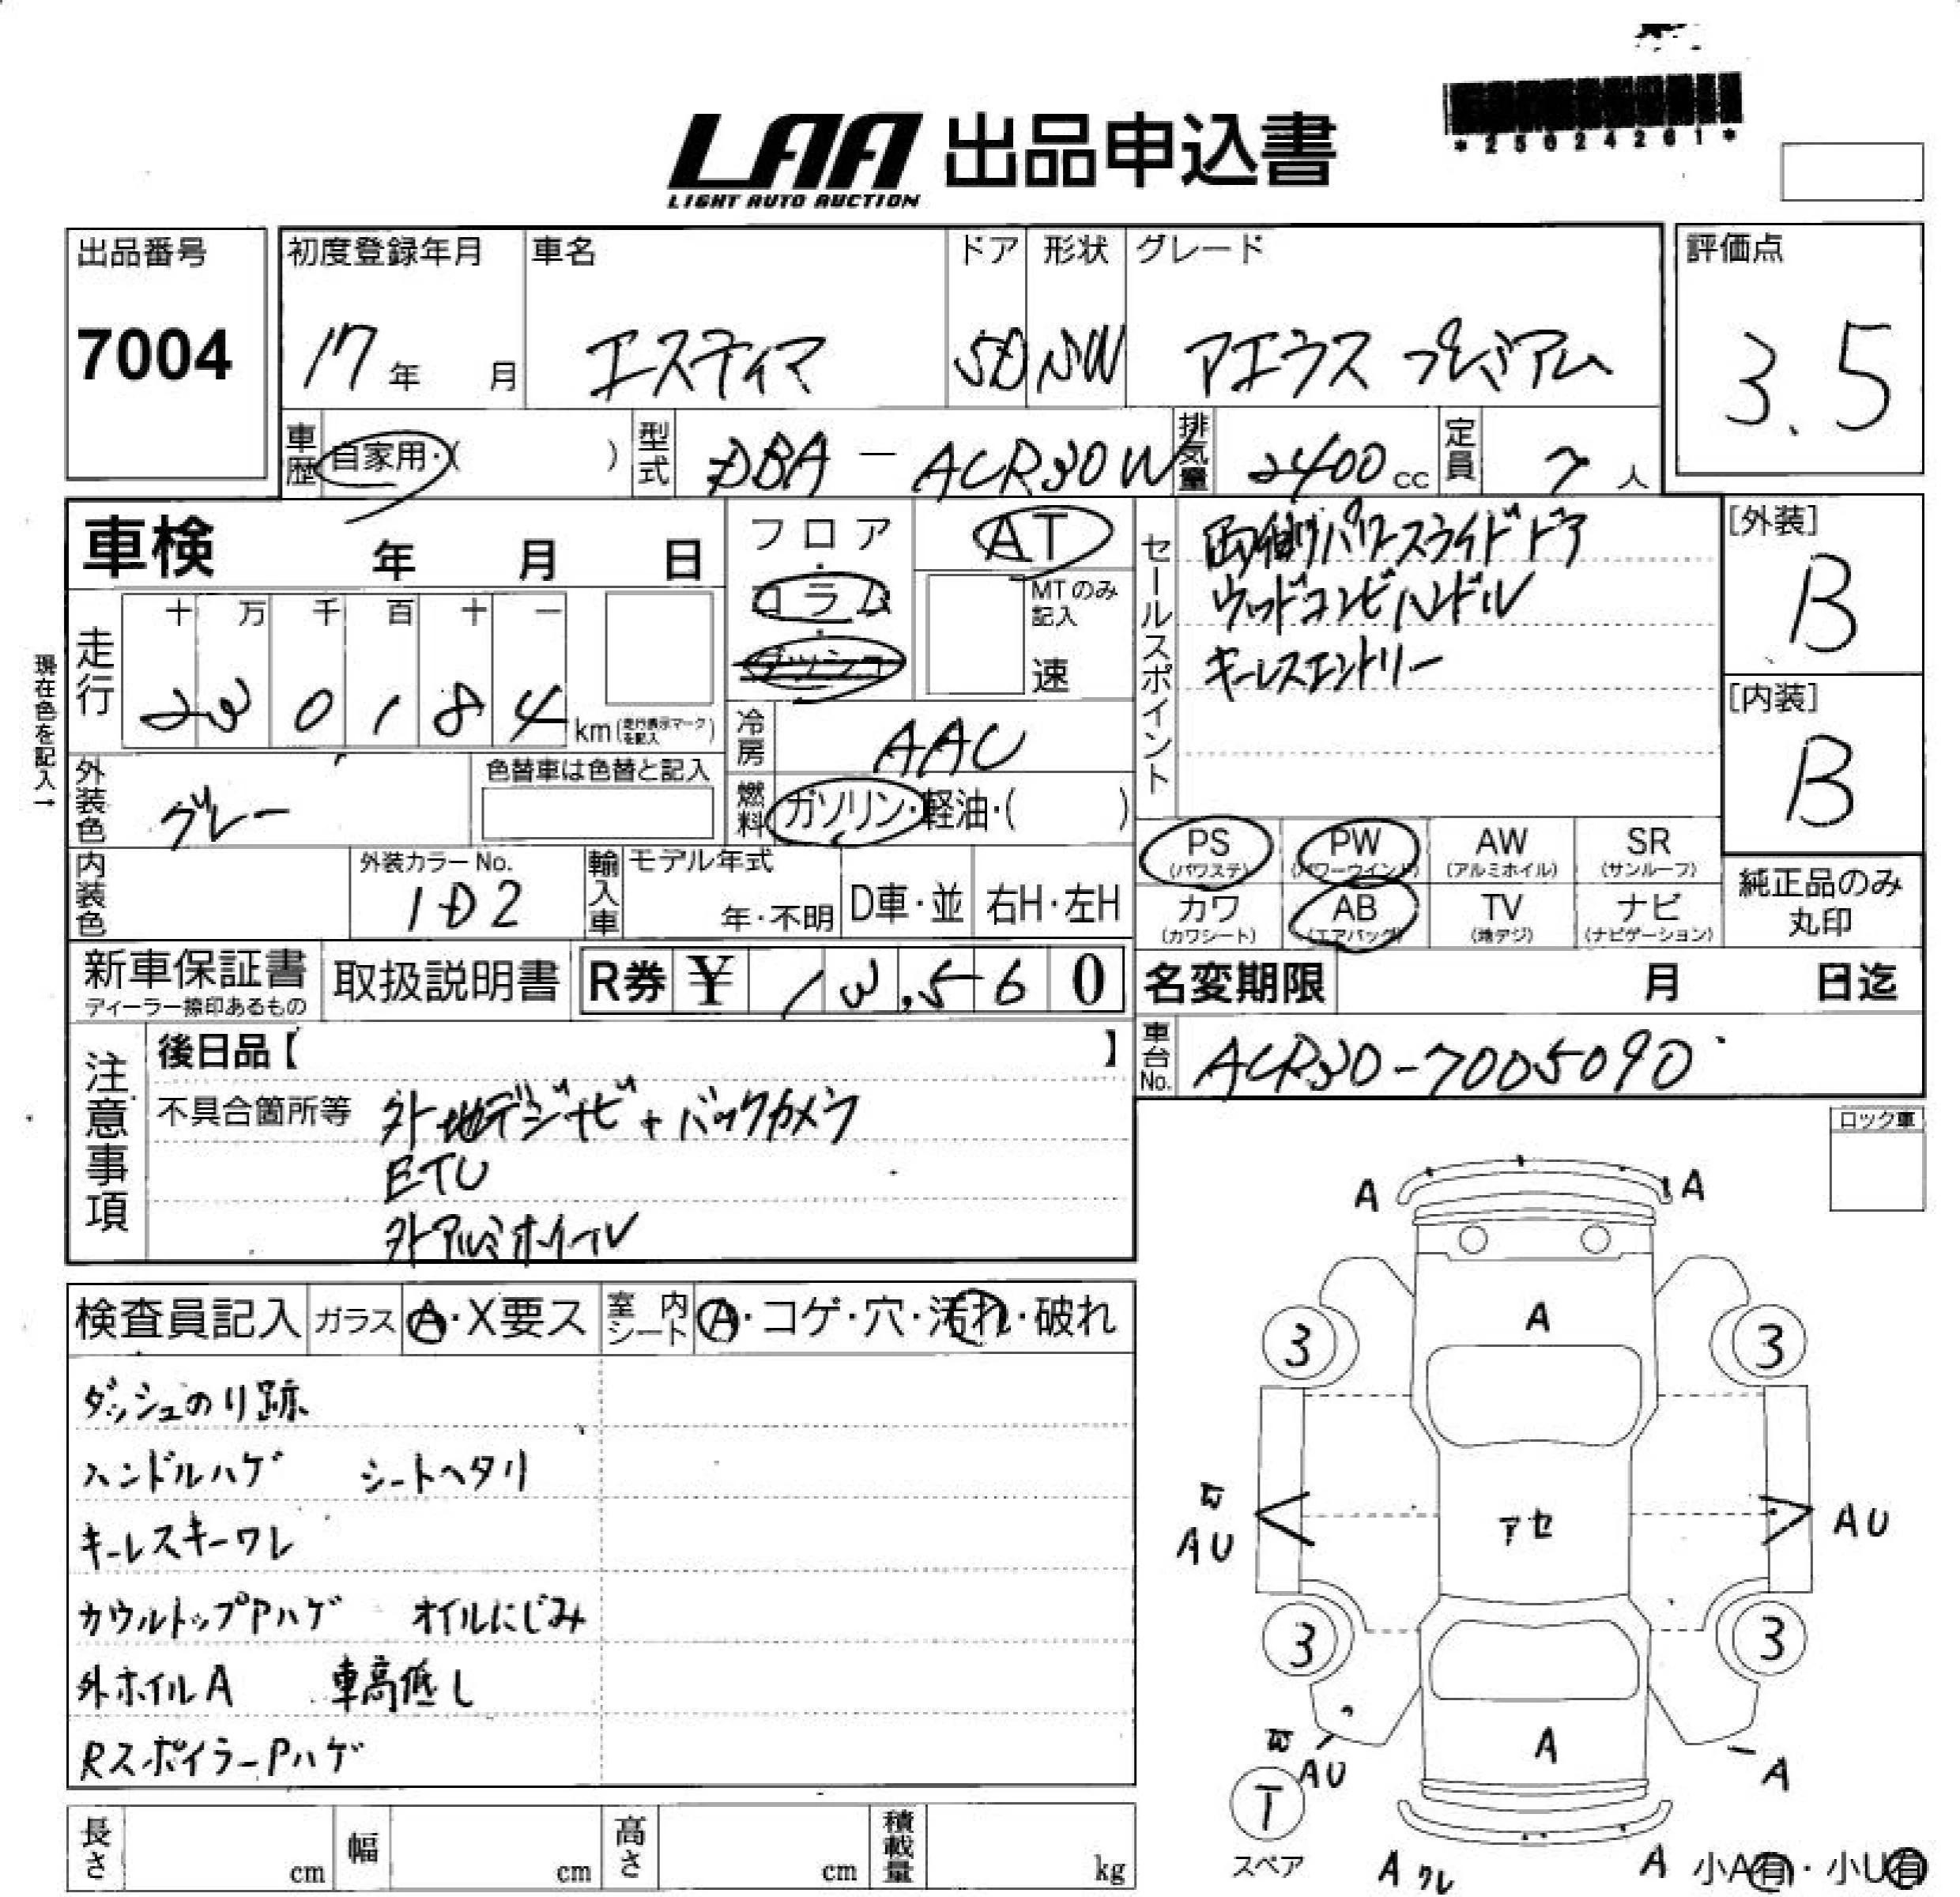 *25024261*
LAA 出品申込書
LIGHT AUTO AUCTION
出品番号
7004
初度登録年月
17年 月
車名
エスティマ
ドア
5D
形状
SW
グレード
アエラス プレミアム
評価点
3.5
車歴
自家用・( )
型式
DBA-ACR30W
排気量
2400cc
定員
7人
車検 年 月 日
フロア・コラム・ダッシュ
AT
MTのみ記入
速
セールスポイント
両側パワースライドドア
ウッドコンビハンドル
キーレスエントリー
[外装]
B
[内装]
B
現在色を記入→
走行
十 万 千 百 十 一
2 3 0 1 8 4 km (走行表示マークを記入)
冷房
AAC
外装色
グレー
色替車は色替と記入
燃料
ガソリン・軽油・( )
PS (パワステ)
PW (パワーウインド)
AW (アルミホイル)
SR (サンルーフ)
カワ (カワシート)
AB (エアバッグ)
TV (地デジ)
ナビ (ナビゲーション)
純正品のみ丸印
内装色
外装カラーNo.
1D2
輸入車
モデル年式
年・不明
D車・並
右H・左H
新車保証書
ディーラー捺印あるもの
取扱説明書
R券 ¥ 13,560
名変期限 月 日迄
車台No.
ACR30-7005090
注意事項
後日品【 】
不具合箇所等
外地デジナビ+バックカメラ
ETC
外アルミホイール
ロック車
検査員記入
ガラス
A・X要ス
室内シート
A・コゲ・穴・汚れ・破れ
ダッシュのり跡
ハンドルハゲ シートヘタリ
キーレスキーワレ
カウルトップPハゲ オイルにじみ
外ホイルA 車高低し
RスポイラーPハゲ
A A
A
3 3
AU
アセ
AU
3 3
AU
A
A
T
スペア
A ワレ
A
小A有・小U有
長さ cm
幅 cm
高さ cm
積載量 kg